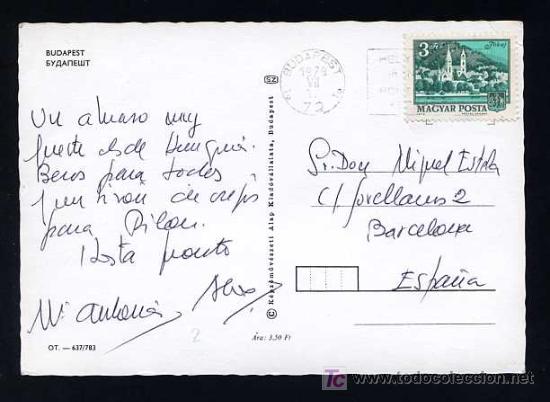 BUDAPEST
БУДАПЕШТ
Un abrazo muy
fuerte desde Hungría.
Besos para todos
y un tirón de orejas
para Pilar.
Hasta pronto
Mª Antonia
BUDAPEST
1979
VII
72
3 Ft
Tokaj
MAGYAR POSTA
SZ
Képzőművészeti Alap Kiadóvállalata, Budapest
Sr. Don Miguel
C/ Jovellanos 2
Barcelona
España
OT. — 637/783
2
Ára: 3,50 Ft
TC todocoleccion
www.todocoleccion.net